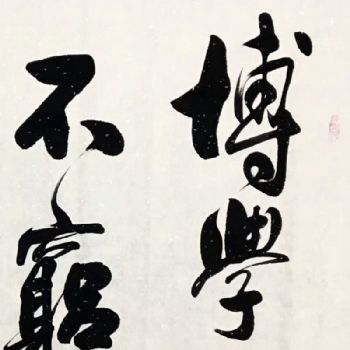 博學
不窮